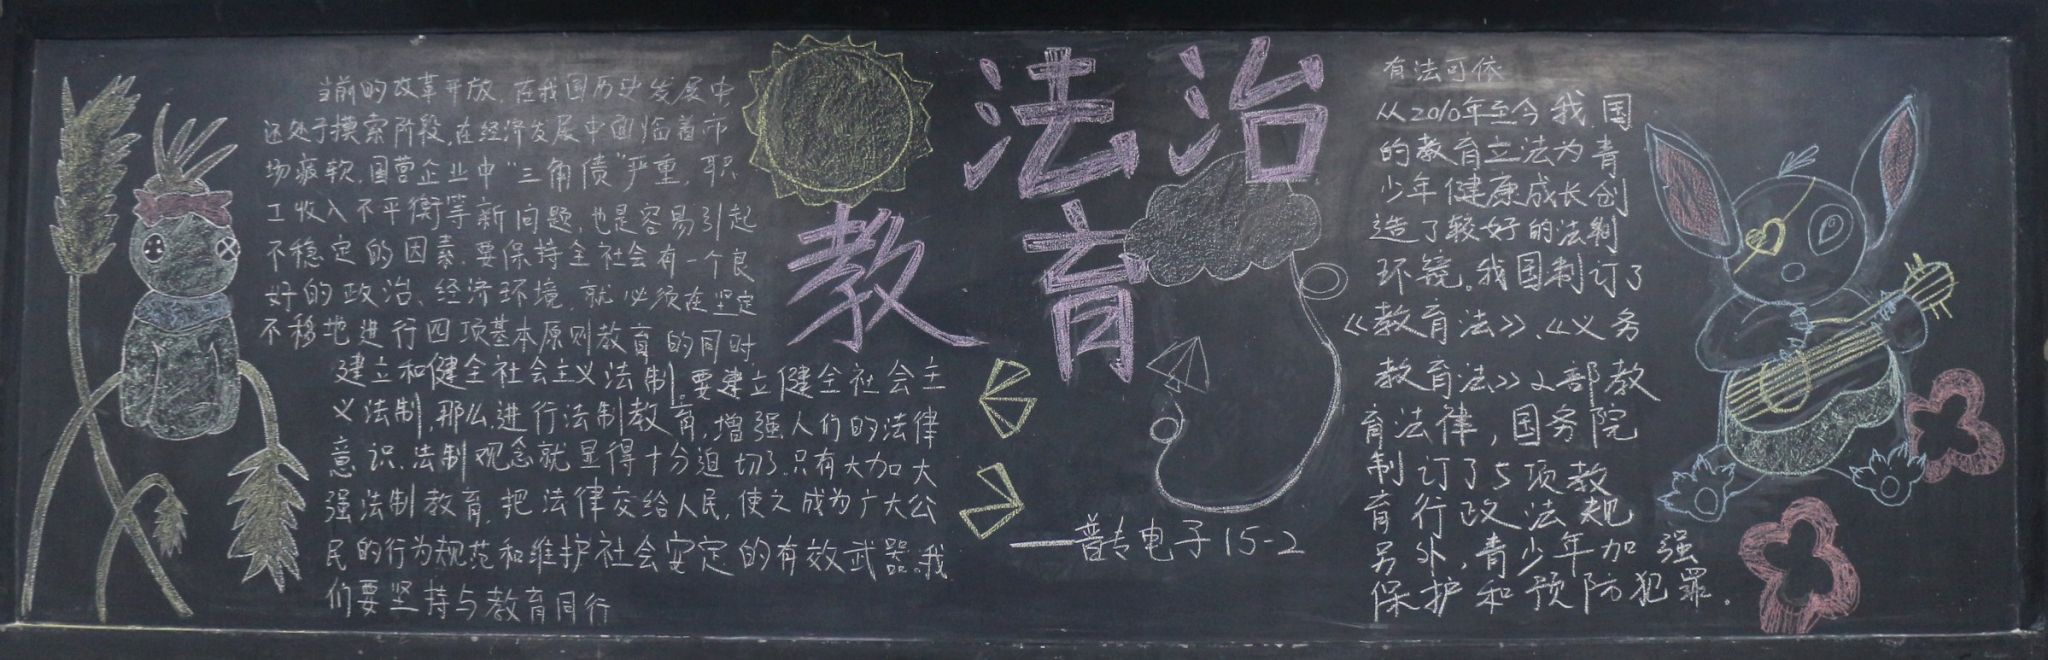 当前的改革开放,在我国历史发展中
还处于摸索阶段,在经济发展中面临着市
场疲软,国营企业中“三角债”严重,职
工收入不平衡等新问题,也是容易引起
不稳定的因素.要保持全社会有一个良
好的政治、经济环境,就必须在坚定
不移地进行四项基本原则教育的同时
建立和健全社会主义法制。要建立健全社会主
义法制,那么,进行法制教育,增强人们的法律
意识、法制观念就显得十分迫切了.只有大加大
强法制教育,把法律交给人民,使之成为广大公
民的行为规范和维护社会安定的有效武器。我
们要坚持与教育同行
法治
教育
——普专电子15-2
有法可依
从2010年至今我国
的教育立法为青
少年健康成长创
造了较好的法制
环境。我国制订了
《教育法》、《义务
教育法》2部教
育法律,国务院
制订了5项教
育行政法规
另外,青少年加强
保护和预防犯罪.